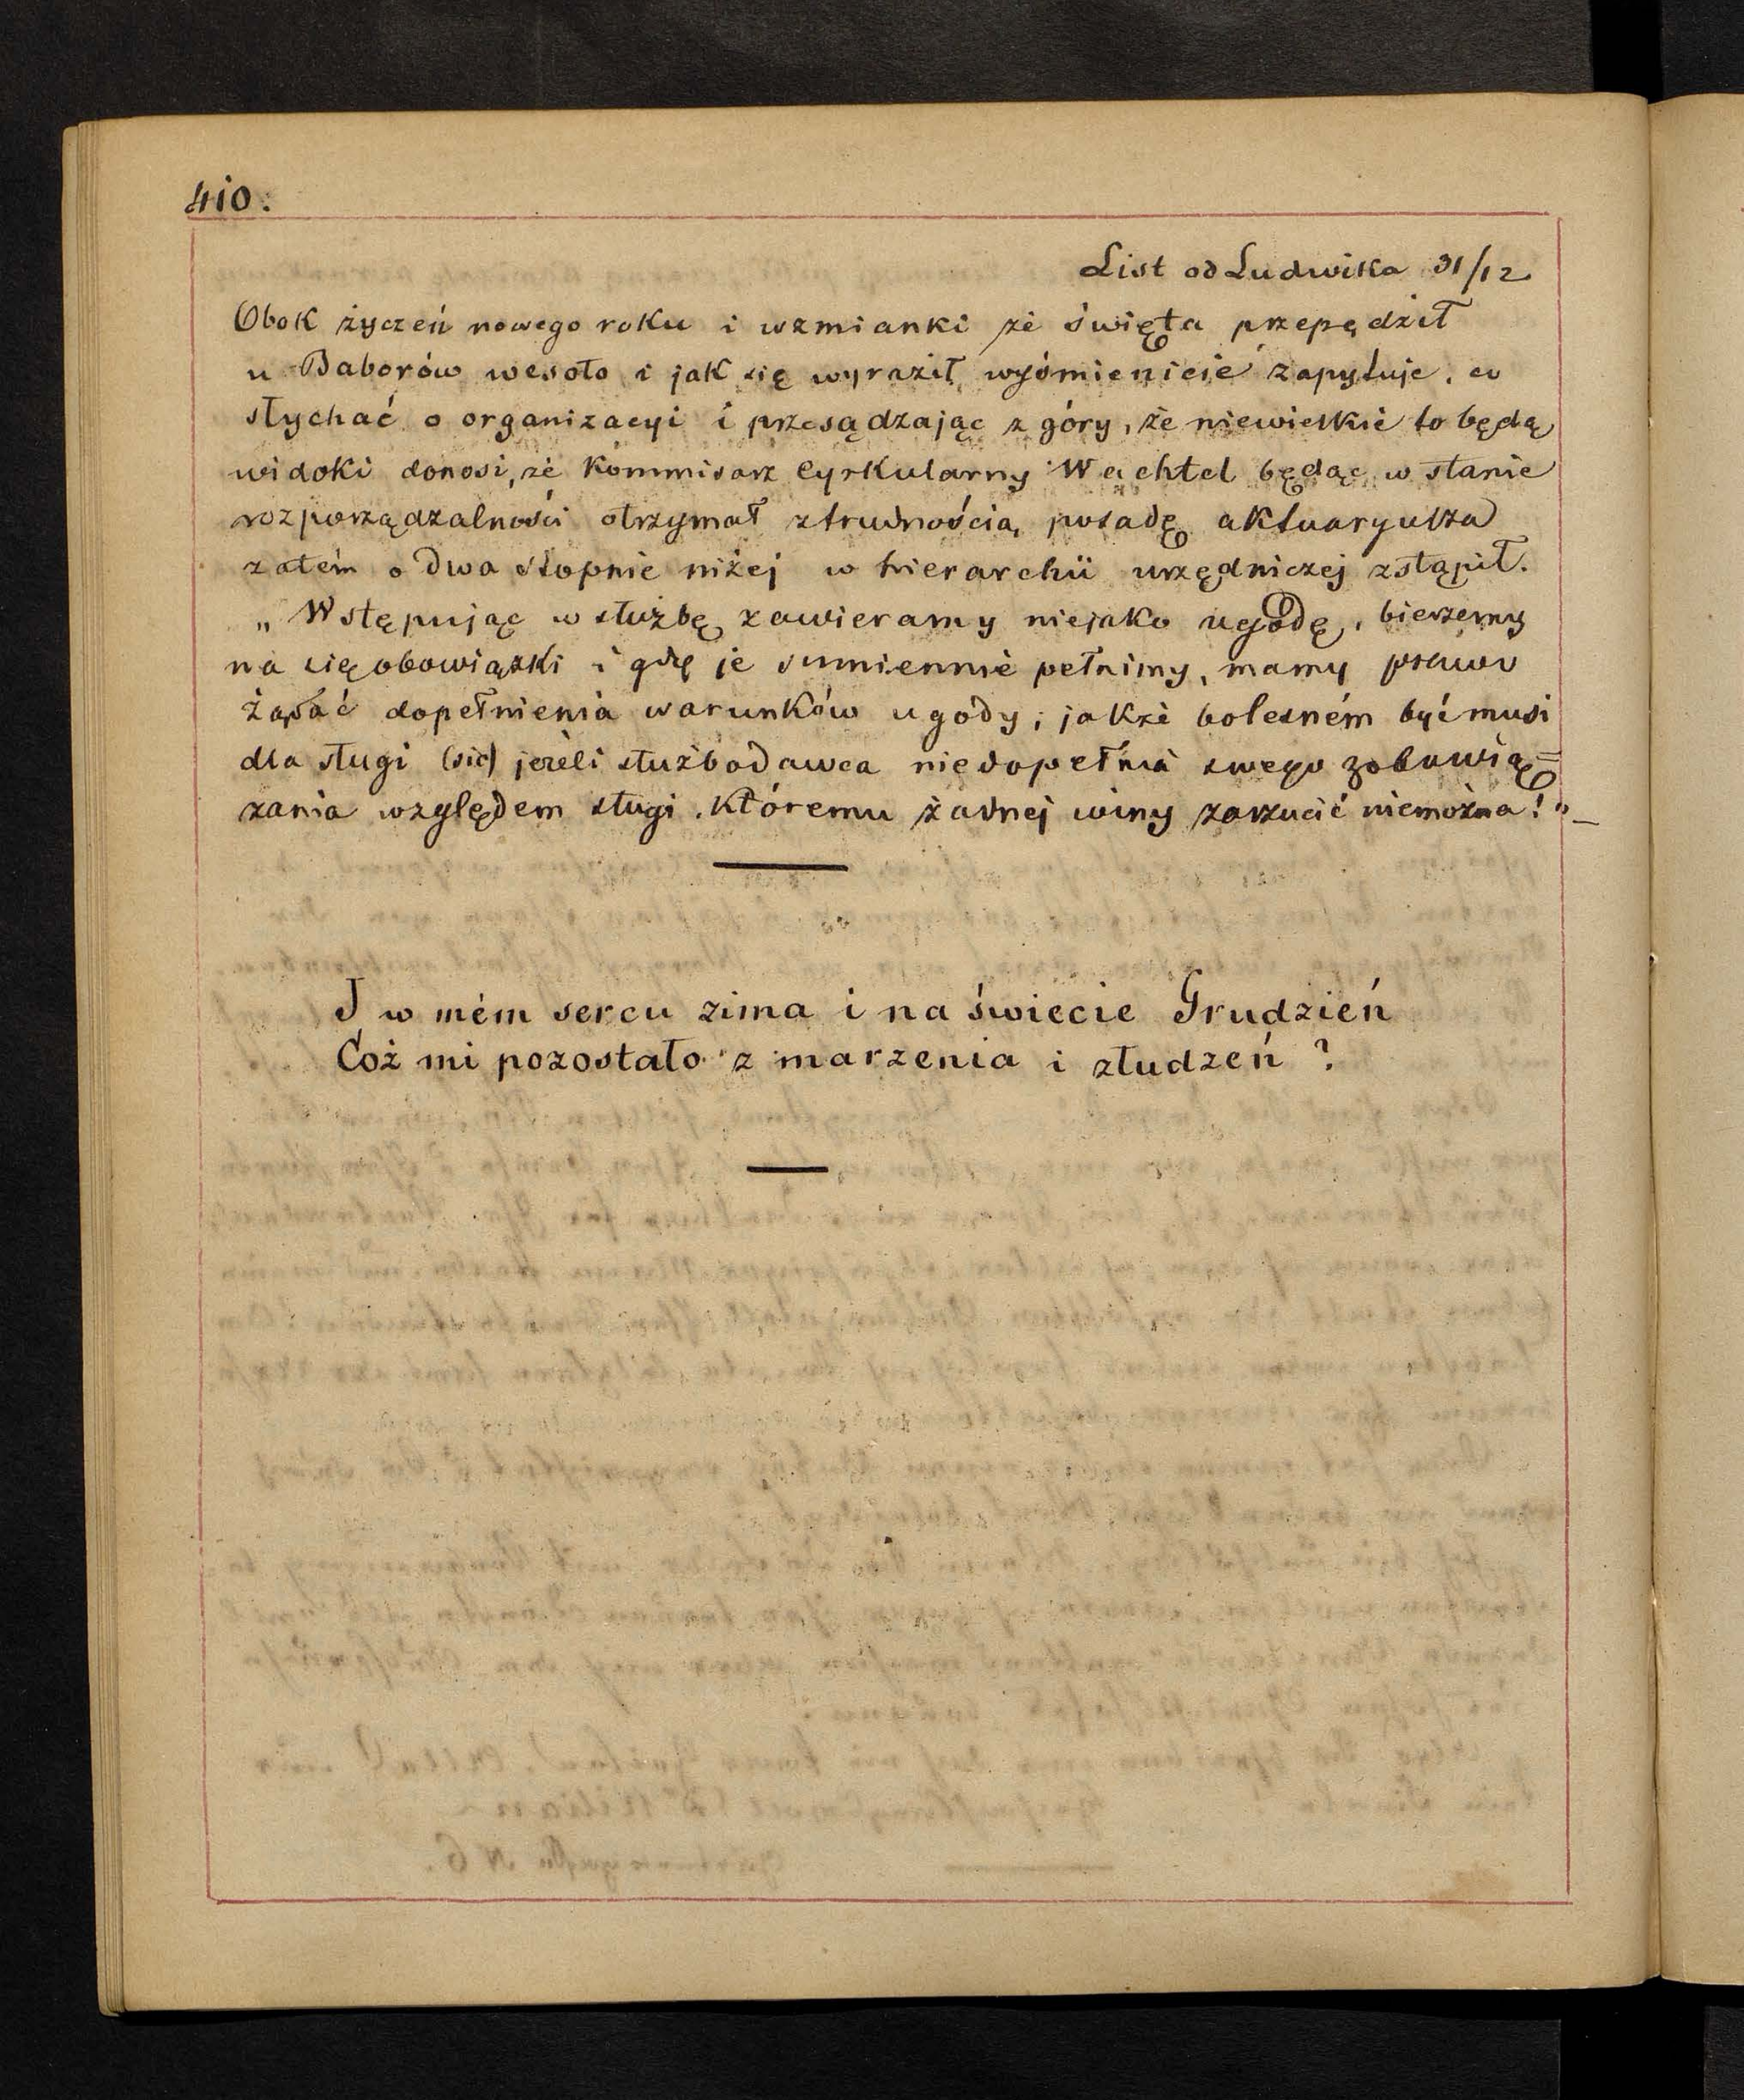 410.
List od Ludwika 31/12
Obok życzeń nowego roku i wzmianki że święta przepędził
u Baborów wesoło i jak się wyraził wyśmienicie zapytuje, co
słychać o organizacyi i przesądzając z góry, że niewielkie to będą
widoki donosi, że Kommisarz Cyrkularny Wachtel będąc w stanie
rozporządzalności otrzymał ztrudnością posadę aktuaryusza
zatém o dwa stopnie niżej w hierarchii urzędniczej zstąpił.
„Wstępując w służbę zawieramy niejako ugodę, bierzemy
na się obowiązki i gdy je sumiennie pełnimy, mamy prawo
żądać dopełnienia warunków ugody; jakże bolesném być musi
dla sługi (sic) jeżeli służbodawca niedopełnia swego zobowią=
zania względem sługi, któremu żadnej winy zarzucić niemożna!" _
I w mém sercu zima i na świecie Grudzień
Cóż mi pozostało z marzenia i złudzeń?